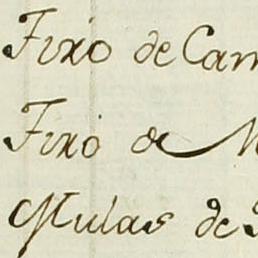 Fixo de Cam
Fixo de M
Mulas de